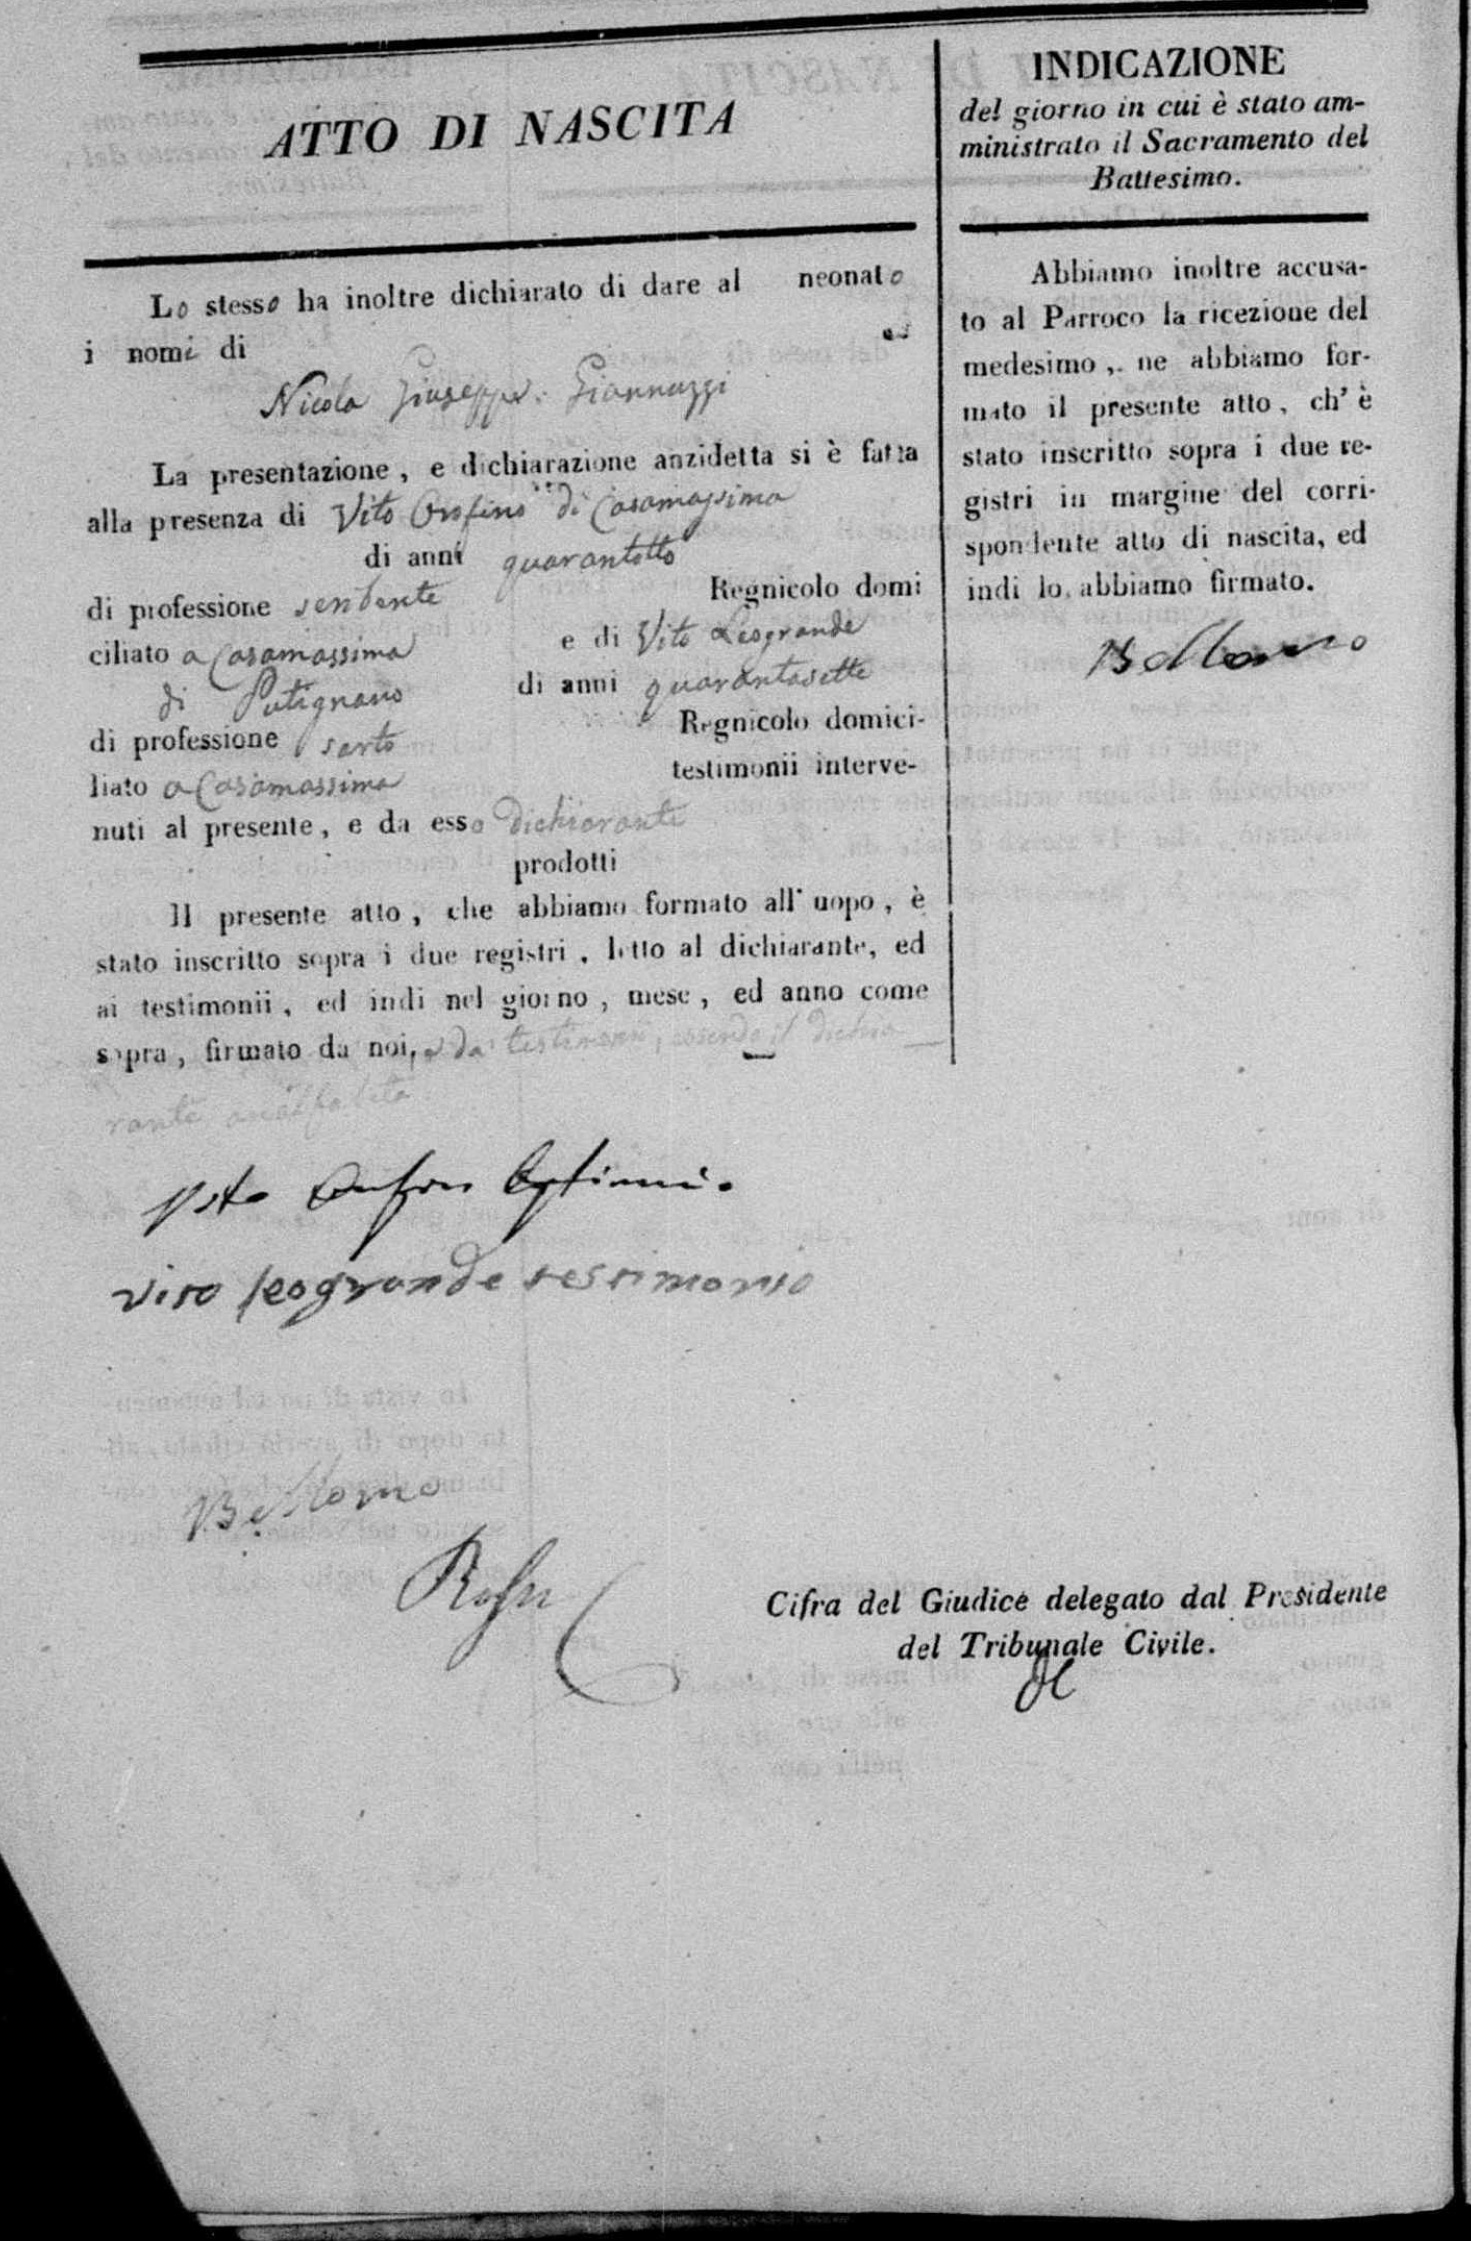 ATTO DI NASCITA
Lo stesso ha inoltre dichiarato di dare al neonato
i nomi di
Nicola Giuseppe Giannuzzi
La presentazione, e dichiarazione anzidetta si è fatta
alla presenza di Vito Onofino di Casamassima
di anni quarantotto
di professione serbente Regnicolo domi
ciliato a Casamassima e di Vito Leogrande
di Putignano di anni quarantasette
di professione sarto Regnicolo domici-
liato a Casamassima testimonii interve-
nuti al presente, e da esso dichiarante
prodotti
Il presente atto, che abbiamo formato all' uopo, è
stato inscritto sopra i due registri, letto al dichiarante, ed
ai testimonii, ed indi nel giorno, mese, ed anno come
sopra, firmato da noi, e da testimoni, essendo il dichia
rante analfabeta
Vito
vito leogrande testimonio
Bellomo
Cifra del Giudice delegato dal Presidente
del Tribunale Civile.
INDICAZIONE
del giorno in cui è stato am-
ministrato il Sacramento del
Battesimo.
Abbiamo inoltre accusa-
to al Parroco la ricezione del
medesimo, ne abbiamo for-
mato il presente atto, ch' è
stato inscritto sopra i due re-
gistri in margine del corri-
spondente atto di nascita, ed
indi lo abbiamo firmato.
Bellomo